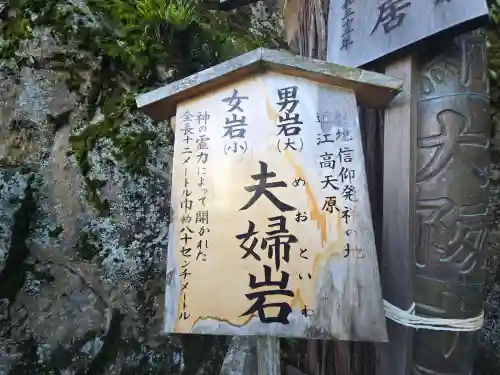 近江高天原
霊地信仰発神の地
男岩(大)
夫婦岩
めおといわ
女岩(小)
神の霊力によって開かれた
全長十二メートル巾約八十センチメートル
居
大阪